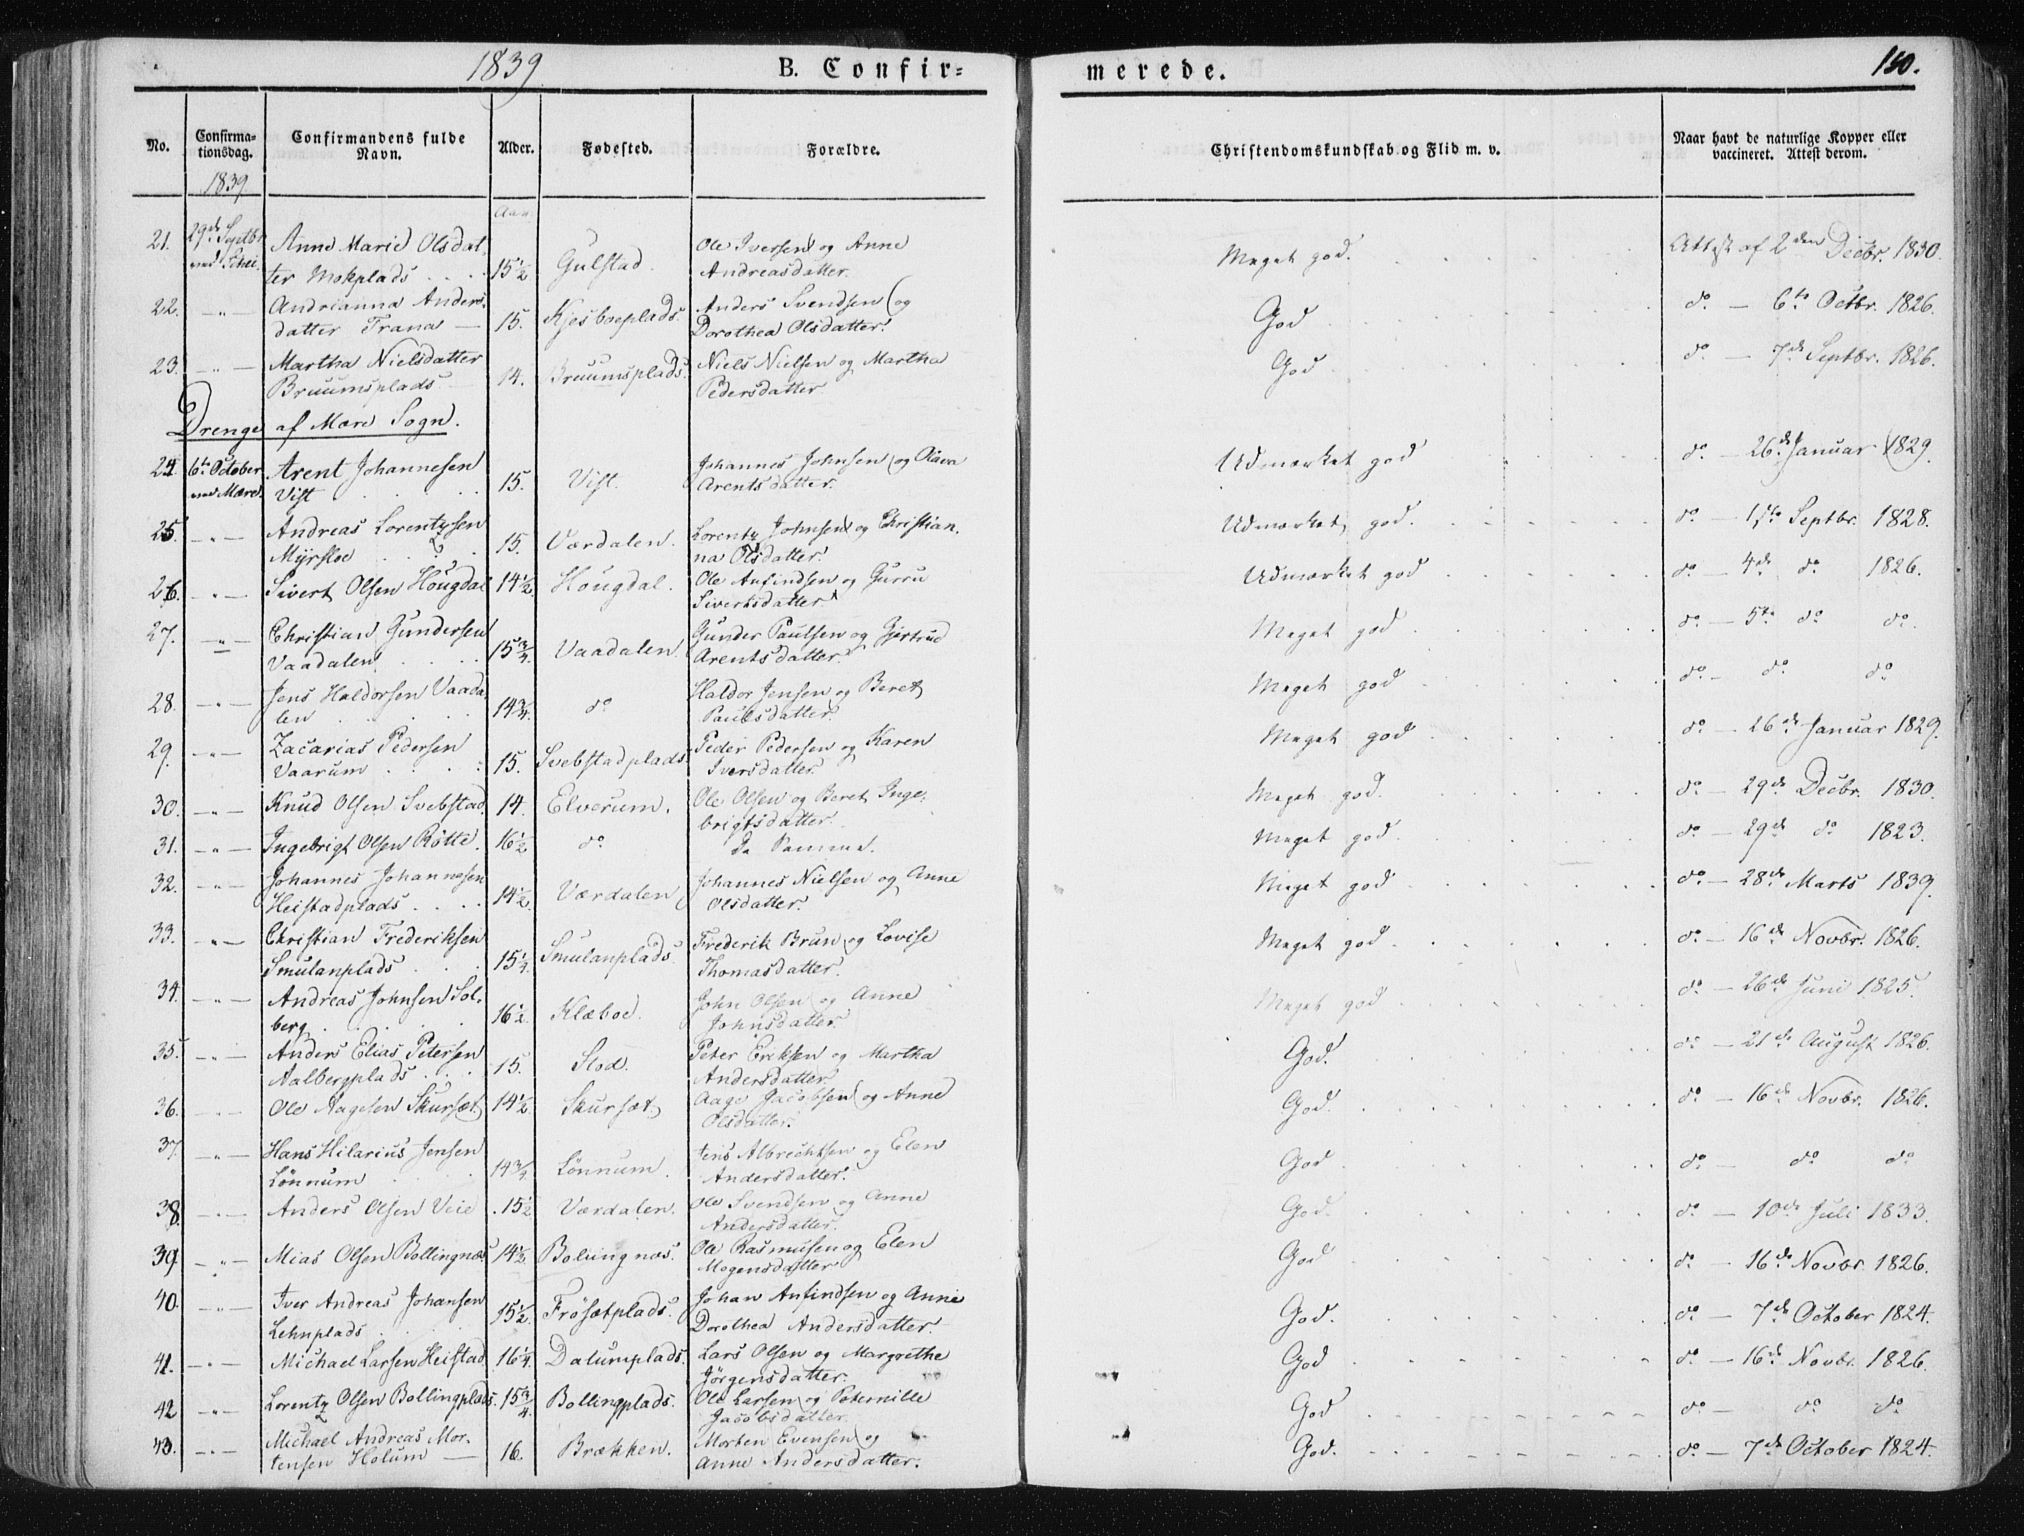 1839 B. Confir= merede. 150.
No. Confirma-tionsdag. Confirmandens fulde Navn. Alder. Fødested. Forældre. Christendomskundskab og Flid m. v. Naar havt de naturlige Kopper eller vaccineret. Attest derom.
1839
Aar
21. 29de Septbr Anne Marie Olsdat- Ole Iversen og Anne
ved Schei. ter Mokplads 15½ Gulstad. Andreasdatter. Meget god. Attest af 2den Decbr. 1830.
22. -"- Andrianna Anders- Anders Svendsen og
datter Trana 15. Kjesboeplads. Dorothea Olsdatter. God do - 6te Octbr. 1826.
23. -"- Martha Nielsdatter Niels Nielsen og Martha
Bruumsplads 14. Bruumsplads. Pedersdatter God do - 7de Septbr. 1826.
Drenge af Mære Sogn.
24 6te October Arent Johannesen Johannes Johnsen og Olava
ved Mære. Vist 15. Vist. Arentsdatter. Udmærket god do - 26de Januar 1829.
25. -"- Andreas Lorentzsen Lorentz Johnsen og Christian-
Myrsloe 15. Værdalen. na Olsdatter. Udmærket god. do - 1ste Septbr. 1828.
26. -"- Sivert Olsen Hougdal 14½ Hougdal. Ole Anfindsen og Gurru
Sivertsdatter Udmærket god do - 4de do 1826.
27. -"- Christian Gundersen Gunder Paulsen og Gjertrud
Vaadalen 15¾. Vaadalen Arentsdatter. Meget god do - 5te do do.
28. -"- Jens Haldorsen Vaada- Haldor Jensen og Beret
len 14¾. do Paulsdatter. Meget god do - do do
29. -"- Zacarias Pedersen Peder Pedersen og Karen
Vaarum 15. Svebstadplads. Iversdatter. Meget god do - 26de Januar 1829.
30. -"- Knud Olsen Svebstad. 14. Elverum. Ole Olsen og Beret Inge-
brigtsdatter. Meget god. do - 29de Decbr. 1830.
31. -"- Ingebrigt Olsen Rötte. 16½ do De Samme. Meget god. do - 29de do 1823.
32. -"- Johannes Johannesen Johannes Nielsen og Anne
Heistadplads 14½. Værdalen Olsdatter. Meget god do - 28de Marts 1839.
33. -"- Christian Frederiksen Frederik Brun og Lovise
Smulanplads 15¼. Smulanplads. Thomasdatter. Meget god do - 16de Novbr. 1826.
34. -"- Andreas Johnsen Sol- John Olsen og Anne
berg 16½. Klæboe. Johnsdatter. Meget god do - 26de Juni 1825.
35. -"- Anders Elias Petersen Peter Eriksen og Martha
Aalbergplads 15. Stod. Andersdatter. God. do - 21de August 1826.
36. -"- Ole Aagesen Skursæt 14½. Skursæt. Aage Jacobsen og Anne
Olsdatter. God. do - 16de Novbr. 1826.
37 -"- Hans Hilarius Jensen Jens Albrechtsen og Elen
Lönnum 14¾. Lönnum. Andersdatter. God do - do do
38. -"- Anders Olsen Veie 15½ Værdalen. Ole Svendsen og Anne
Andersdatter. God. do - 10de Juli 1833.
39 -"- Mias Olsen Bollingnæs. 14½. Bolingnæs. Ole Rasmusen og Elen
Mogensdatter God do - 16de Novbr. 1826.
40. -"- Iver Andreas Johansen Johan Anfindsen og Anne
Lehnplads 15½. Frösætplads. Dorothea Andersdatter. God. do - 7de October 1824.
41. -"- Michael Larsen Heistad 16¼. Dalumplads. Lars Olsen og Margrethe
Jörgensdatter. God do - 16de Novbr. 1826.
42 -"- Lorentz Olsen Bollingplads. 15¾. Bollingplads. Ole Larsen og Peternille
Jacobsdatter. God do - do do
43. -"- Michael Andreas Mor- Morten Evensen og
tensen Holum 16. Brækken. Anne Andersdatter. God. do - 7de October 1824.